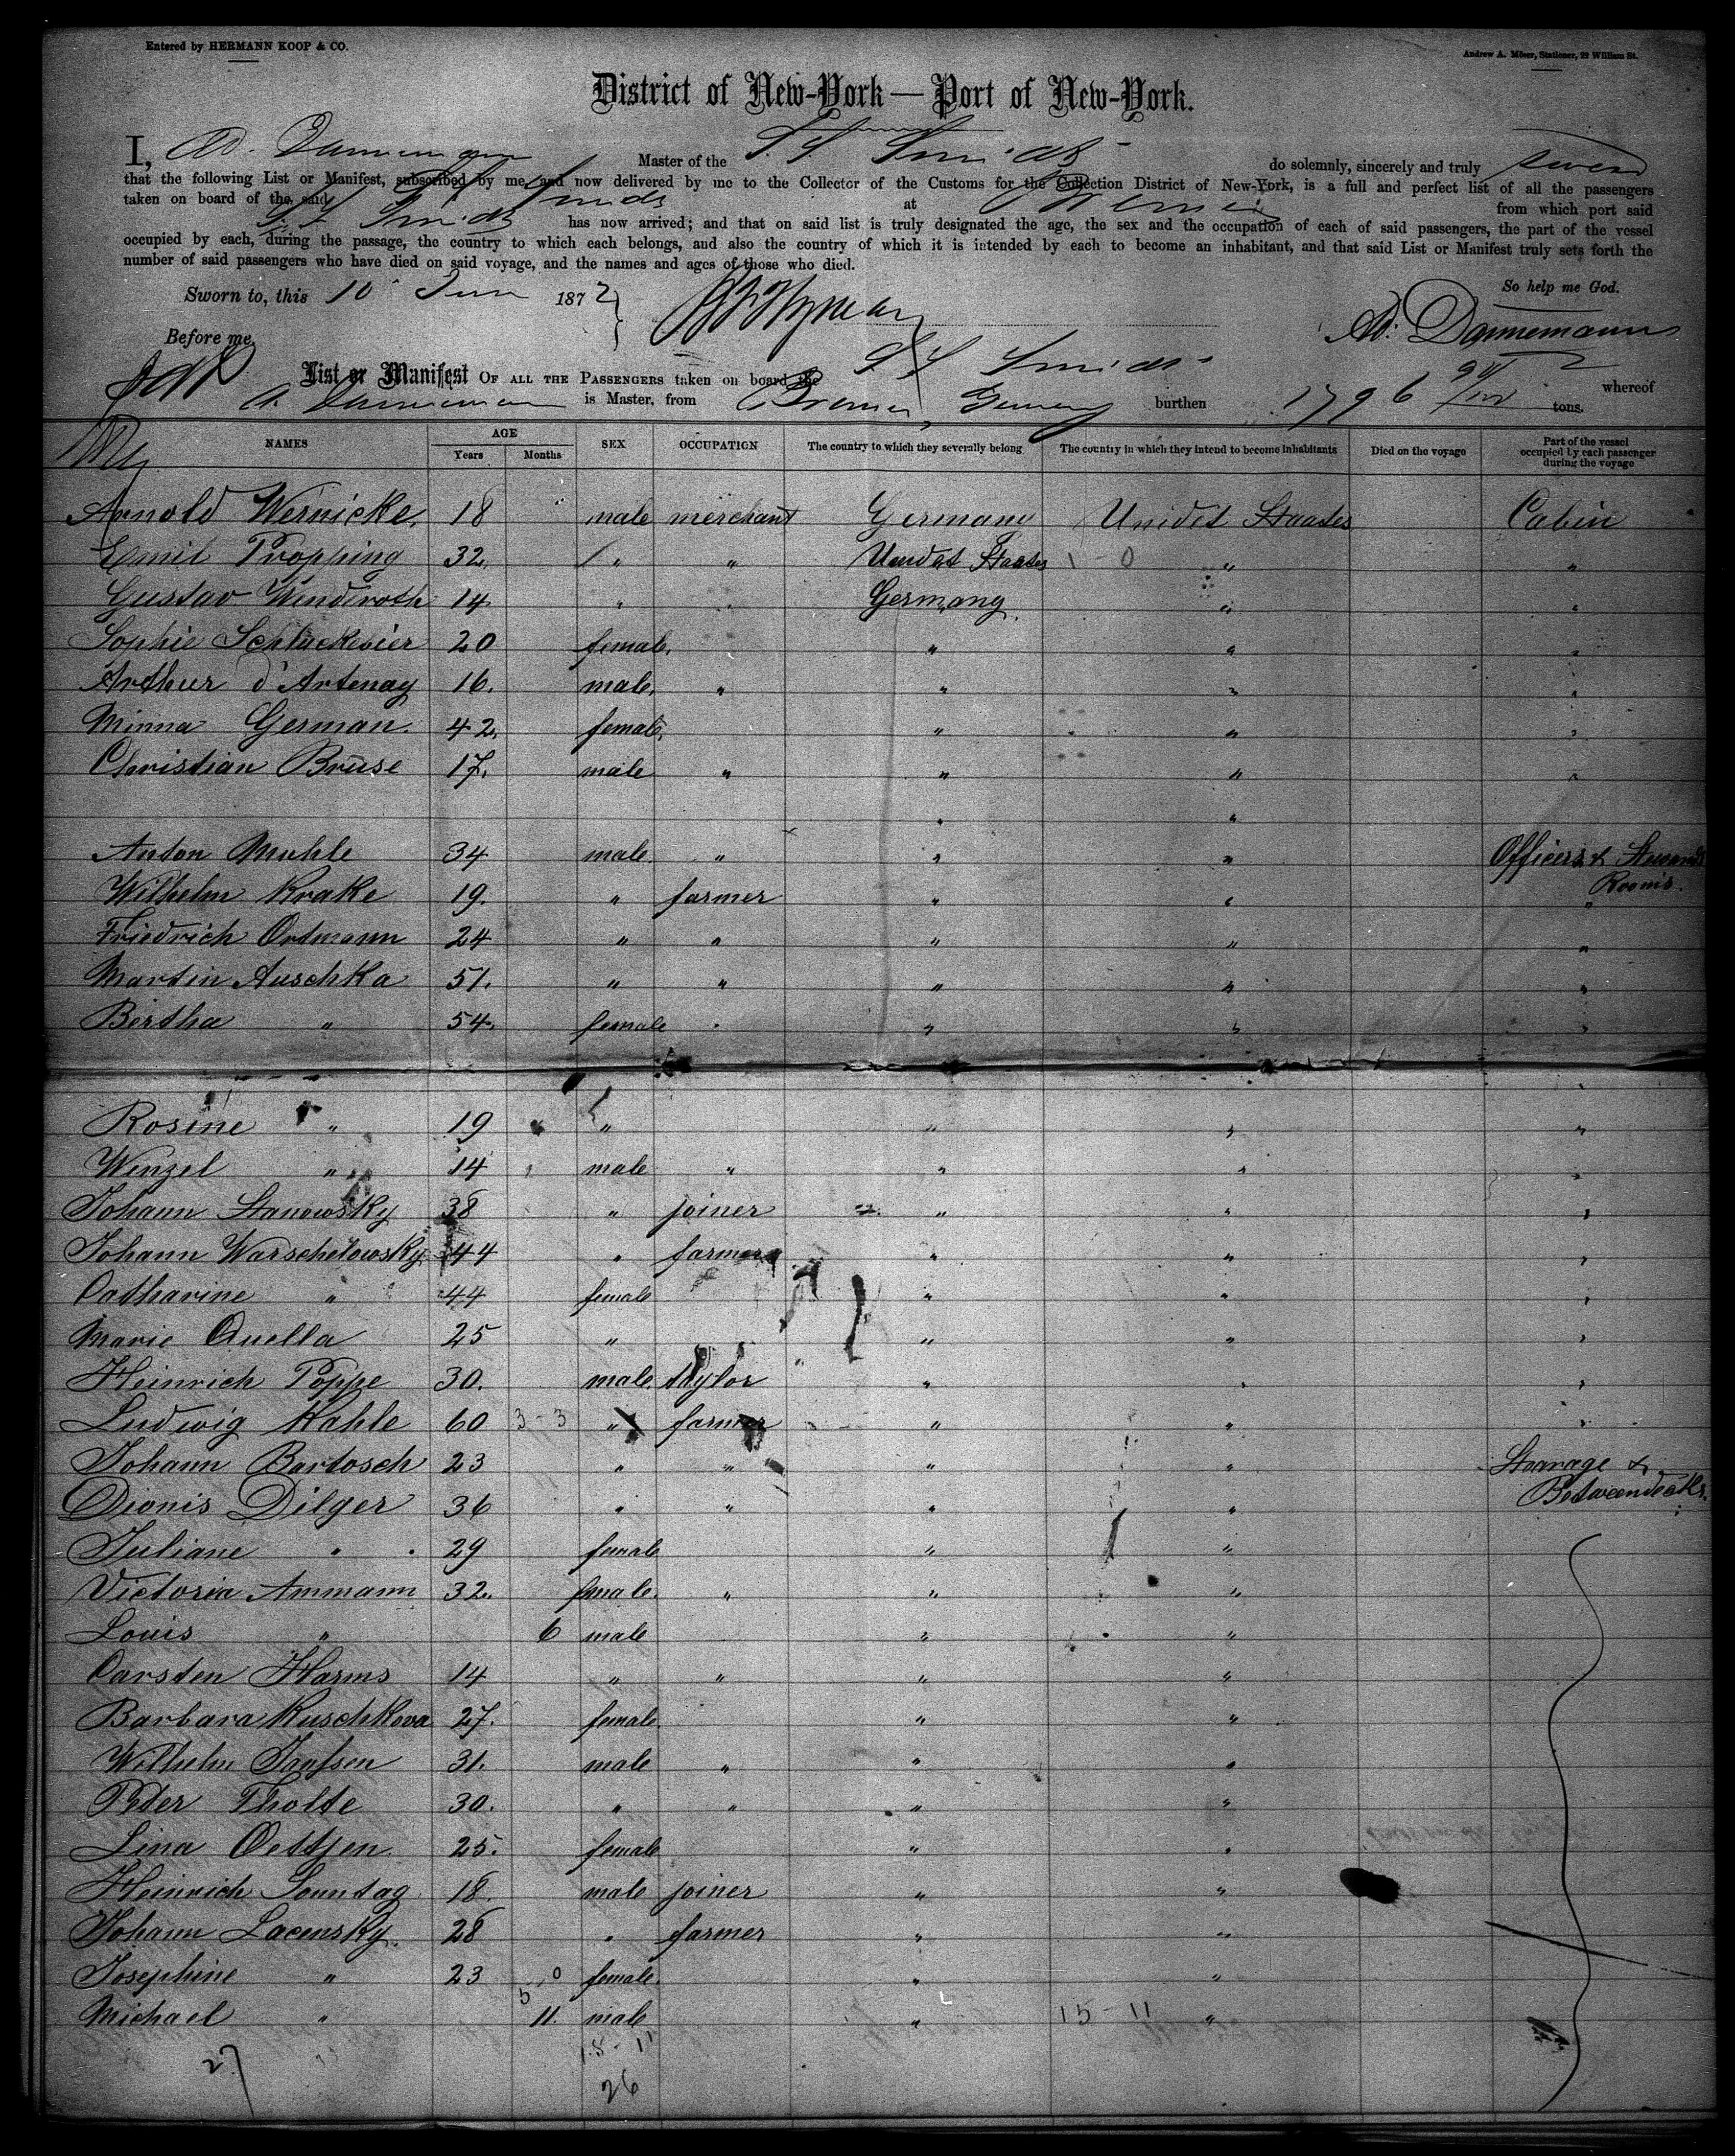 Entered by HERMANN KOOP & CO.
Andrew A. Möser, Stationer, 22 William St.
District of New-York — Port of New-York.
I, Ad. Dannemann Master of the S.S. Smidt do solemnly, sincerely and truly swear
that the following List or Manifest, subscribed by me, and now delivered by me to the Collector of the Customs for the Collection District of New-York, is a full and perfect list of all the passengers
taken on board of the said S.S. Smidt at Bremen from which port said
S.S. Smidt has now arrived; and that on said list is truly designated the age, the sex and the occupation of each of said passengers, the part of the vessel
occupied by each, during the passage, the country to which each belongs, and also the country of which it is intended by each to become an inhabitant, and that said List or Manifest truly sets forth the
number of said passengers who have died on said voyage, and the names and ages of those who died.
Sworn to, this 10 June 1872 So help me God.
Before me, Ad: Dannemann
List or Manifest OF ALL THE PASSENGERS taken on board the S.S. Smidt whereof
A. Dannemann is Master, from Bremen Germany burthen 1796 tons.
NAMES AGE Years Months SEX OCCUPATION The country to which they severally belong The country in which they intend to become inhabitants Died on the voyage Part of the vessel occupied by each passenger during the voyage
Arnold Wernicke. 18 " male merchant Germany Unidet Staates Cabin
Emil Propping 32. " " Unidet Staates 1-0 " "
Gustav Windwoth 14 " " Germany. " "
Sophie Schluckebier 20 female. " " "
Arthur d'Artenay 16. male. " " " "
Minna German. 42. female. " " "
Christian Bruse 17. male " " " "
" "
Anton Muhle 34 male. " " " Officers & Stewards
Rooms.
Wilhelm Krake 19. " farmer " " "
Friedrich Ortmann 24 " " " " "
Martin Auschka 51. " " " " "
Bertha " 54. female " " " "
Rosine " 19 " " " "
Wenzel " 14 male " " " "
Johann Stanowsky 38 " joiner " " "
Johann Warschelowsky 44 " farmer " " "
Catharine " 44 female " " "
Marie Quella 25 " " " "
Heinrich Poppe 30. male. taylor " " "
Ludwig Kahle 60 3-3 " farmer " " "
Johann Bartosch 23 " " " " Stearage &
Betweendecks.
Dionis Dilger 36 " " " "
Juliane " 29 female " "
Victoria Ammann 32. female. " " "
Louis " 6 male " "
Carsten Harms 14 " " " "
Barbara Kuschkova 27. female. " "
Wilhelm Janssen 31. male " " "
Peter Tholte 30. " " " "
Lina Oettjen. 25. female " "
Heinrich Sonntag 18. male joiner " "
Johann Lacensky. 28 " farmer " "
Josephine " 23 0 female. " "
Michael " 5 11. male " 15-11 "
27 18-11
26